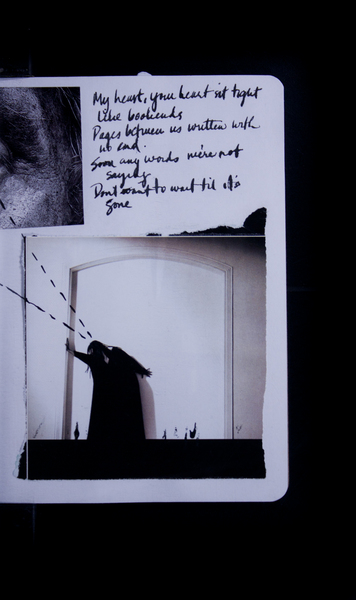 My heart, your heart sit tight
like bookends
Pages between us written with
no end.
Soon any words we're not
saying
Don't want to wait til it's
gone